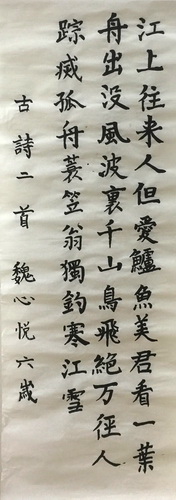 江上往来人但愛鱸魚美君看一葉
舟出没風波裏千山鳥飛絶万徑人
踪烕孤舟蓑笠翁獨釣寒江雪
古詩二首 魏心悦六歲